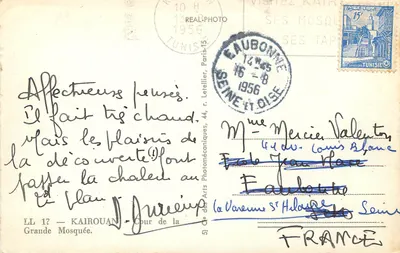 REAL-PHOTO
10 H
1956
TUNIS
VISITEZ KAIR
SES MOSQ
SES TAP
EAUBONNE
14H45
16 - 6
1956
SEINE ET OISE
15F
TUNISIE
Affectueuses pensées.
Il fait très chaud.
Mais les plaisirs de
la découverte (!) font
passer la chaleur au
2e plan
LL 17 - KAIROUAN. Cour de la
Grande Mosquée.
des Arts Photomécaniques, 44, r. Letellier, Paris-15
Mme Mercier Valenton
Louis Blanc
Eaubonne
La Varenne St Hilaire
Seine
FRANCE